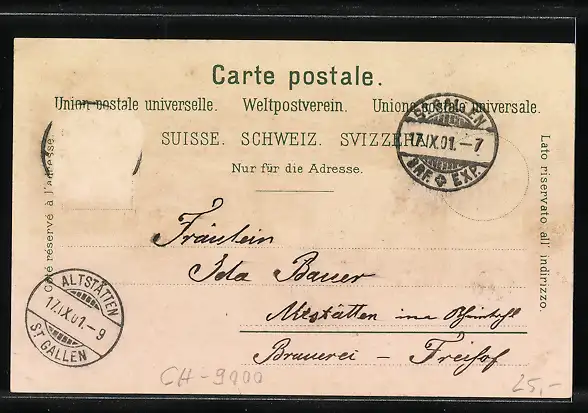 Carte postale.
Union postale universelle. Weltpostverein. Unione postale universale.
SUISSE. SCHWEIZ. SVIZZERA.
Nur für die Adresse.
Côté réservé à l'adresse.
Lato riservato all' indirizzo.
ST. GALLEN
17.IX.01.-7
BRF. EXP.
Fräulein
Ida Bauer
Altstätten im Rheinthal
Brauerei - Freihof
ALTSTÄTTEN
17.IX.01.-9
ST GALLEN
CH-9000
25,-